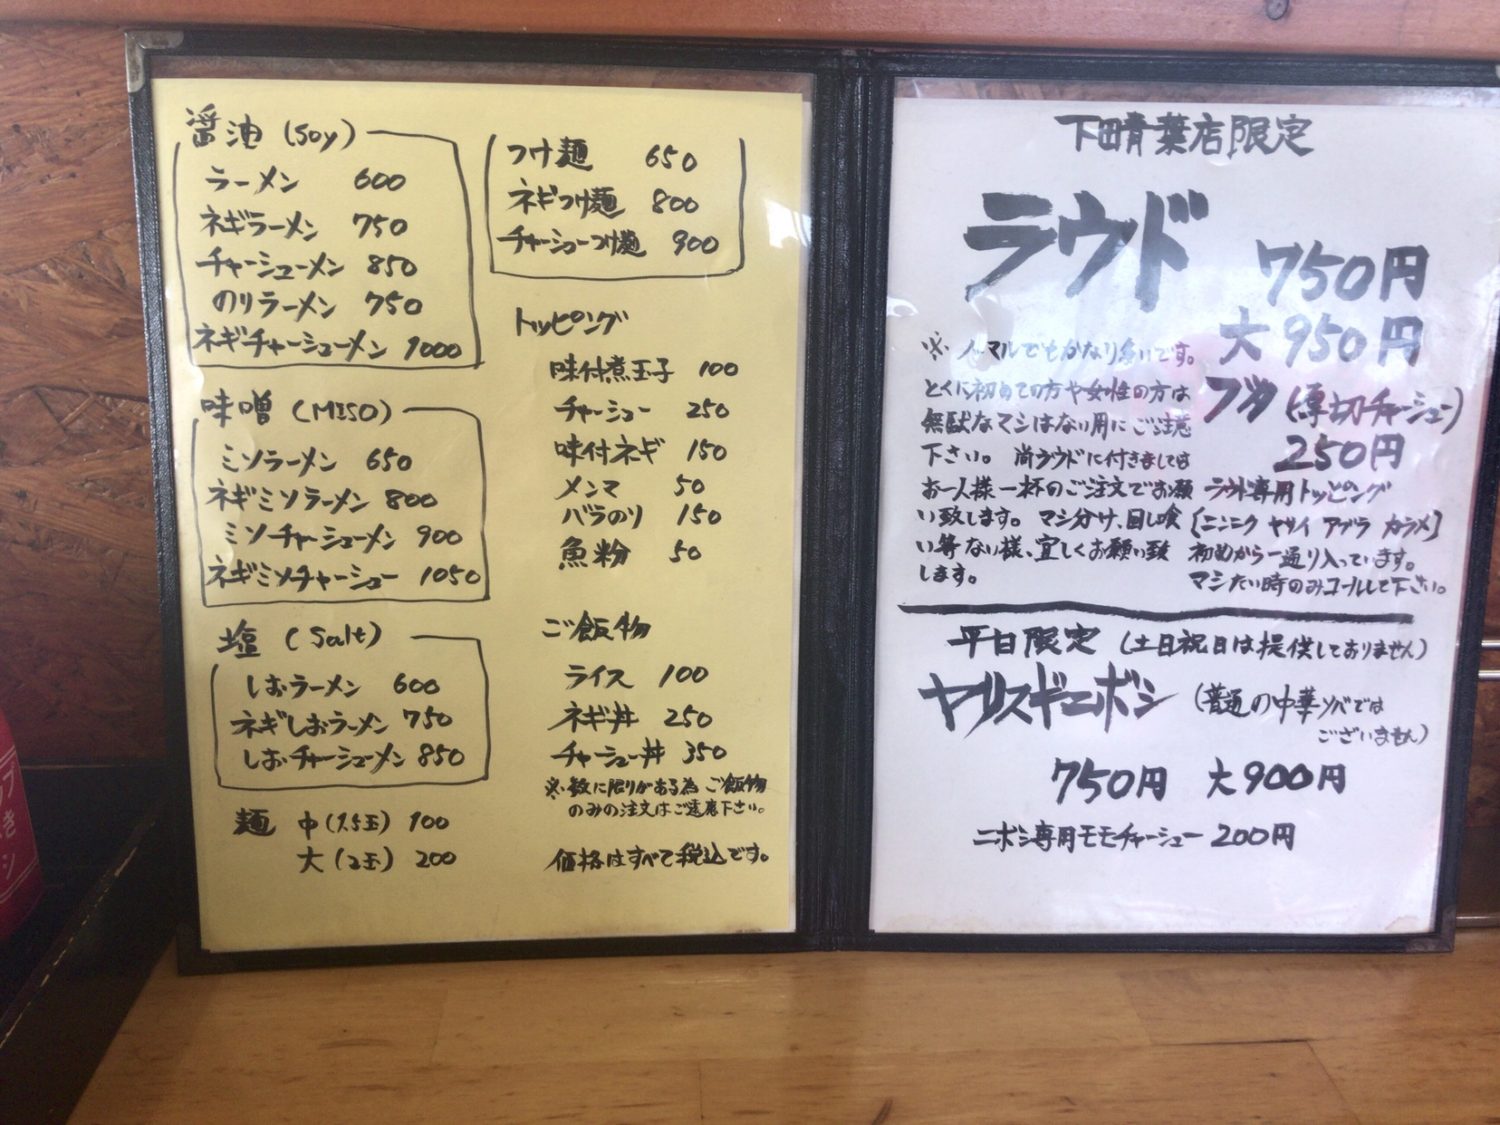 醤油 (Soy)
ラーメン 600
ネギラーメン 750
チャーシューメン 850
のりラーメン 750
ネギチャーシューメン 1000
味噌 (MISO)
ミソラーメン 650
ネギミソラーメン 800
ミソチャーシューメン 900
ネギミソチャーシュー 1050
塩 (Salt)
しおラーメン 600
ネギしおラーメン 750
しおチャーシューメン 850
麺 中(1.5玉) 100
大(2玉) 200
つけ麺 650
ネギつけ麺 800
チャーシューつけ麺 900
トッピング
味付煮玉子 100
チャーシュー 250
味付ネギ 150
メンマ 50
バラのり 150
魚粉 50
ご飯物
ライス 100
ネギ丼 250
チャーシュー丼 350
※数に限りがある為ご飯物
のみの注文はご遠慮下さい。
価格はすべて税込です。
下田青葉店限定
ラウド 750円
大 950円
※ノーマルでもかなり多いです。
とくに初めての方や女性の方は
無駄なマシはない用にご注意
下さい。尚ラウドに付きましては
お一人様一杯のご注文でお願
い致します。マシ分け、回し喰
い等ない様、宜しくお願い致
します。
ブタ(厚切チャーシュー)
250円
ラウド専用トッピング
[ニンニク ヤサイ アブラ カラメ]
初めから一通り入っています。
マシたい時のみコールして下さい。
平日限定 (土日祝日は提供しておりません)
ヤリスギニボシ (普通の中華ソバでは
ございません)
750円 大900円
ニボシ専用モモチャーシュー 200円